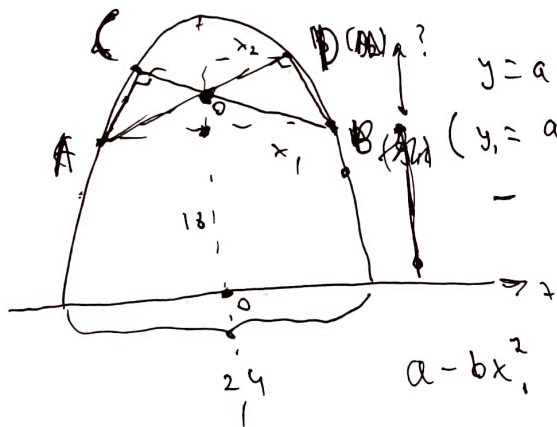 C
x₂
D
?
y = a
A
O
x₁
B
( y₁ = a
−
18
O
24
a − bx₁²